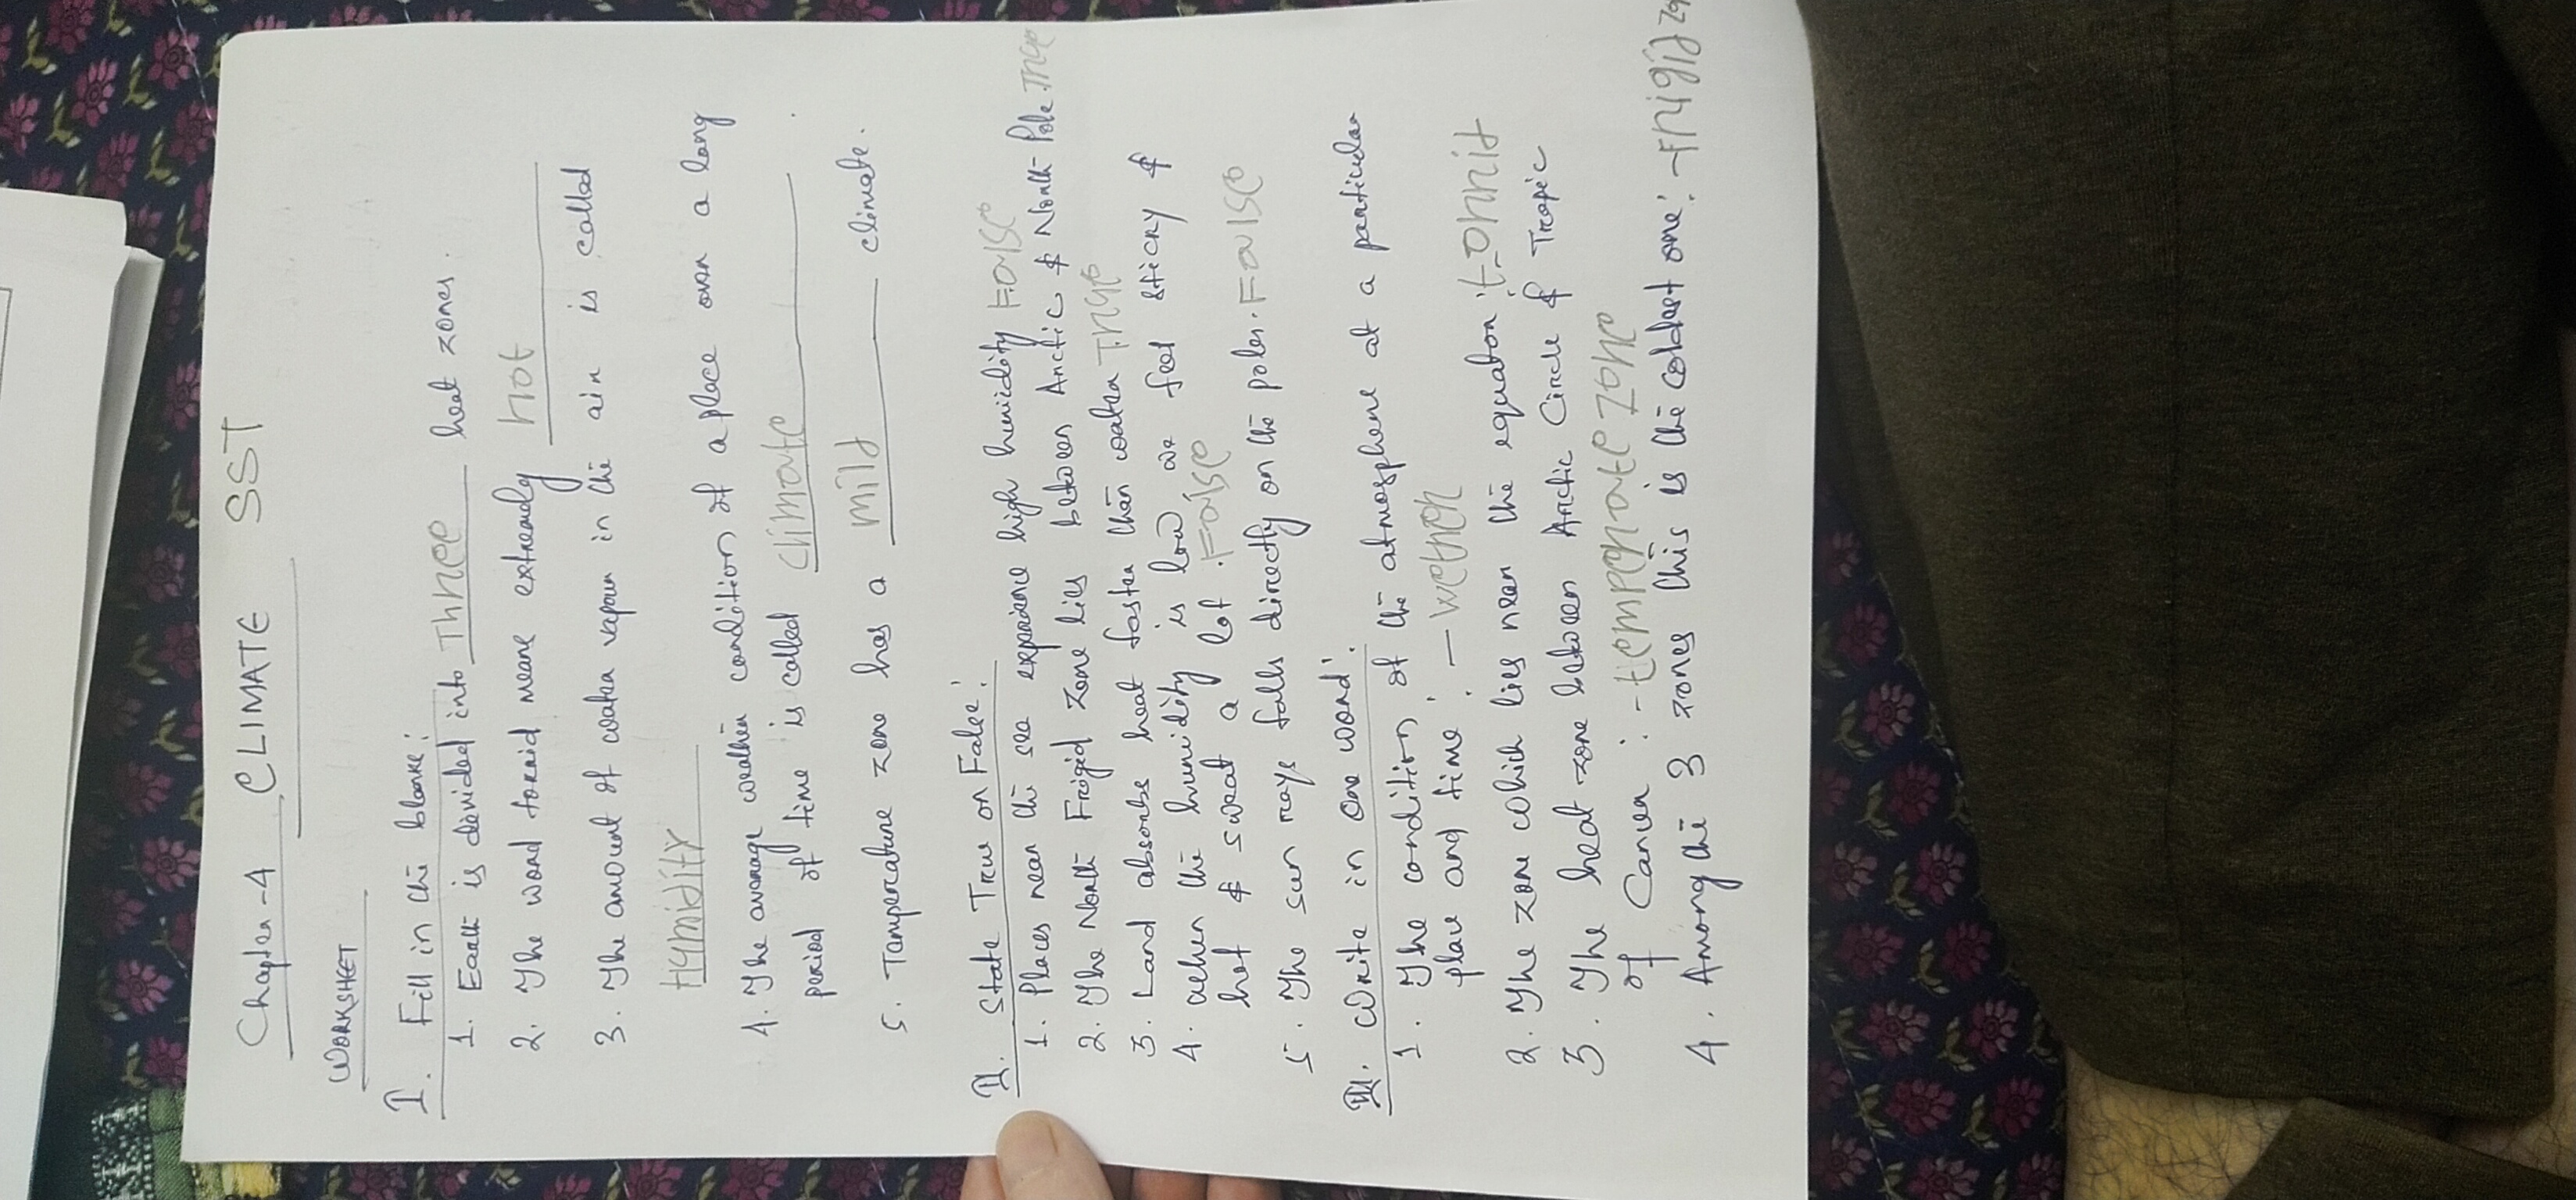 Chapter-4 CLIMATE SST
WORKSHEET
I. Fill in the blanks:
1. Earth is devided into Three heat zones.
2. The word torrid means extremely hot
3. The amount of water vapour in the air is called
Hymidity
4. The average weather condition of a place over a long
period of time is called climate.
5. Temperature zone has a mild climate.
II. State True or False:
1. Places near the sea experience high humidity False
2. The North Frigid zone lies between Arctic & North Pole True
3. Land absorbs heat faster than water True
4. When the humidity is low we feel sticky &
hot & sweat a lot. False
5. The sun rays falls directly on the poles. False
III. Write in one word:
1. The condition of the atmosphere at a particular
place and time: - wether
2. The zone which lies near the equator: torrid
3. The heat zone between Arctic Circle & Tropic
of Cancer :- temperate zone
4. Among the 3 zones this is the coldest one: - Frigid